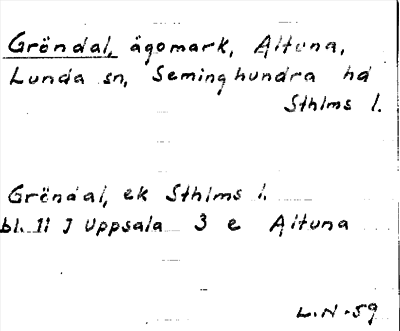 Gröndal, ägomark, Altuna,
Lunda sn, Seminghundra hd
Sthlms l.
Gröndal, ek Sthlms l.
bl. 11 J Uppsala 3 e Altuna
L.N-59